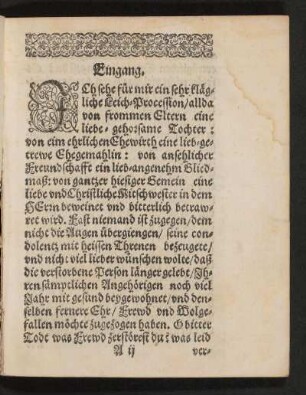 Eingang.
ICh sehe für mir ein sehr kläg-
liche Leich-Procession/allda
von frommen Eltern eine
liebe-gehorsame Tochter:
von eim ehrlichen Ehewirth eine lieb-ge-
trewe Ehegemahlin: von ansehlicher
Freundschafft ein lieb-angenehm Glied-
maß: von gantzer hiesiger Gemein eine
liebe vnd Christliche Mitschwester in dem
HErrn beweinet vnd bitterlich betraw-
ret wird. Fast niemand ist zugegen/dem
nicht die Augen übergiengen/ seine con-
dolentz mit heissen Threnen bezeugete/
vnd nicht viel lieber wünschen wolte/daß
die verstorbene Person länger gelebt/Ih-
ren sämptlichen Angehörigen noch viel
Jahr mit gesund beygewohnet/vnd den-
selben fernere Ehr/ Frewd vnd Wolge-
fallen möchte zugezogen haben. O bitter
Todt was Frewd zerstörest du? was leid
A ij ver-